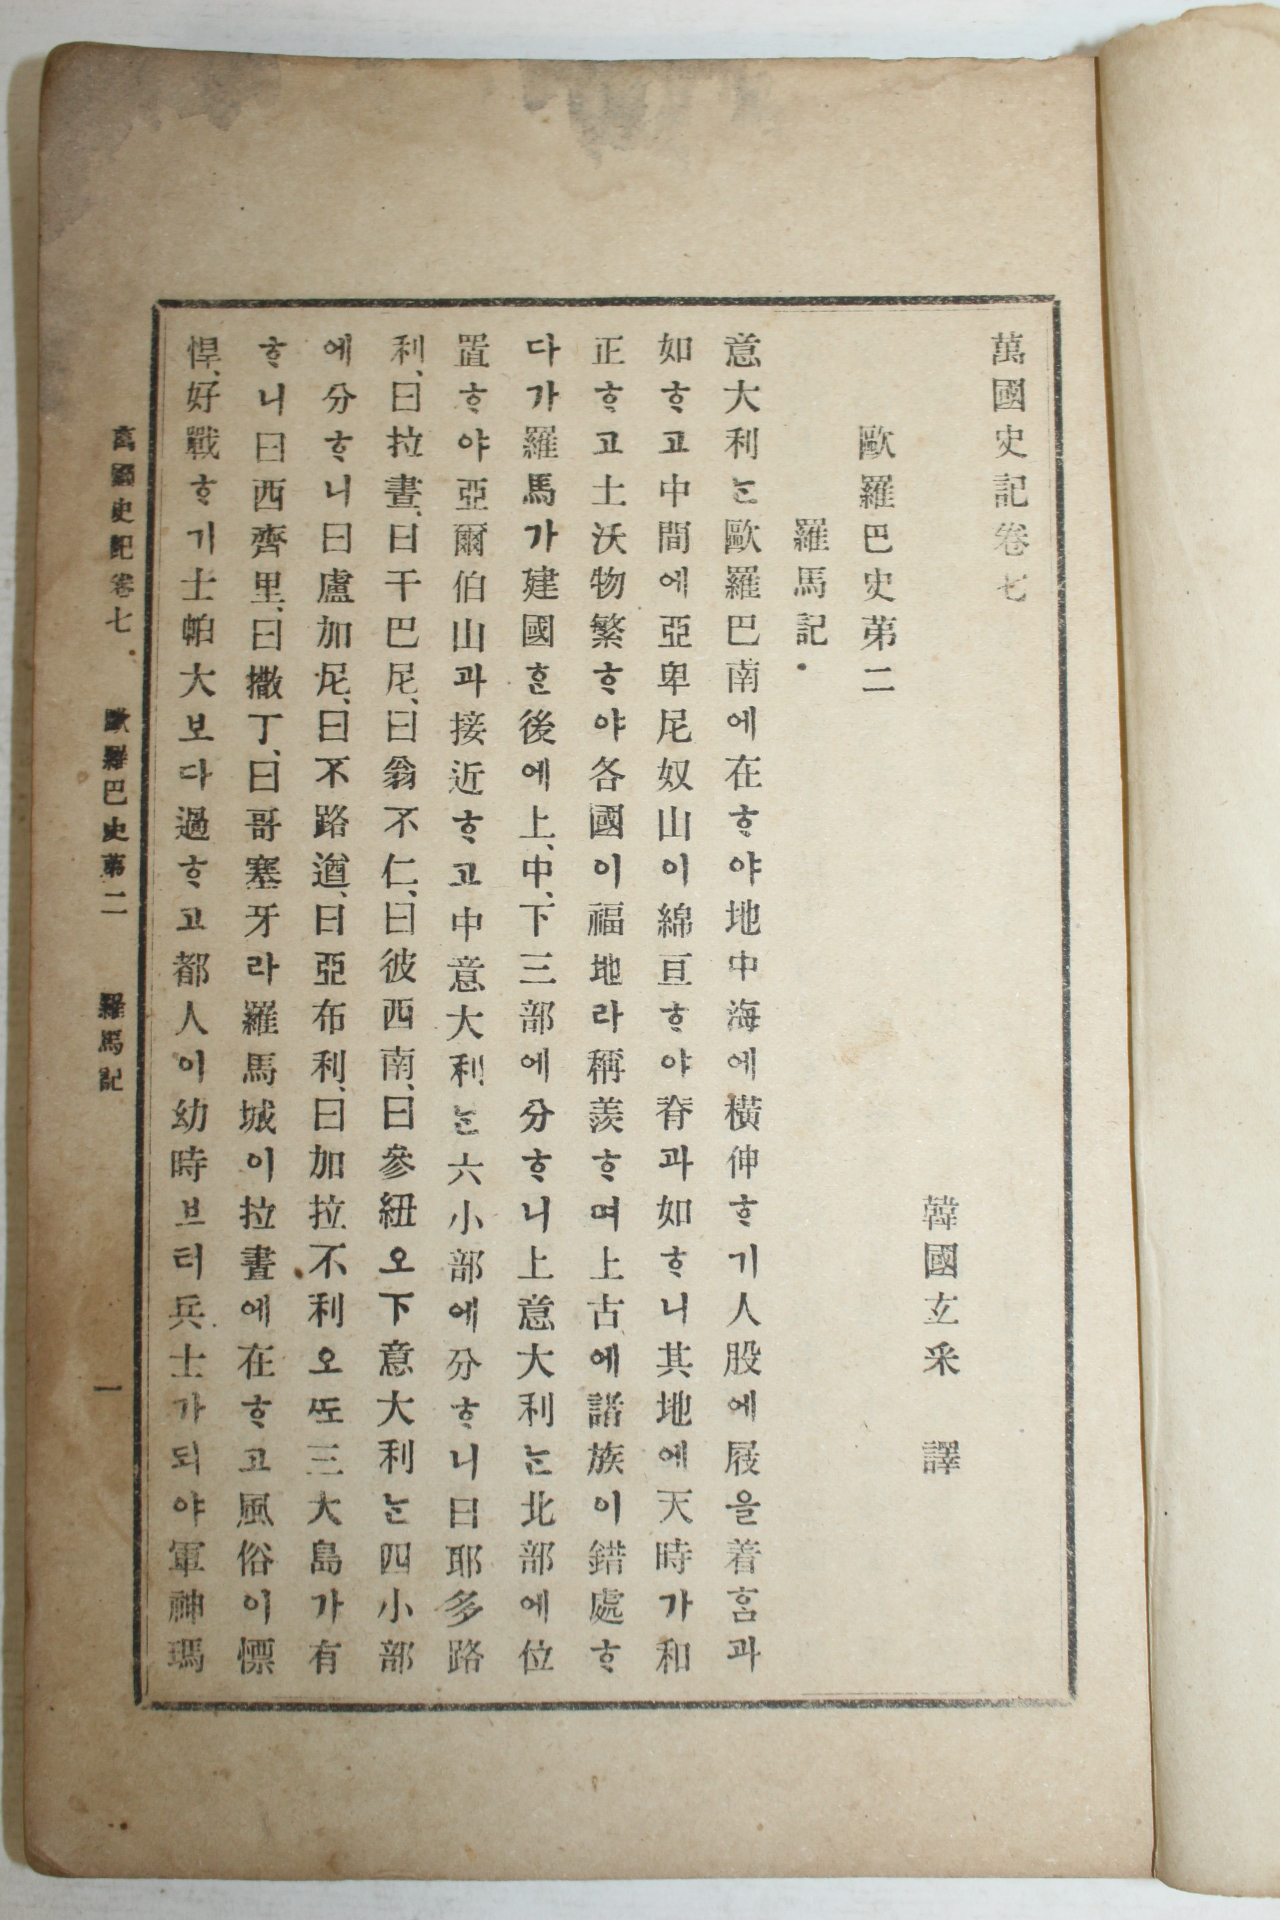 萬國史記卷七
韓國玄采 譯
歐羅巴史第二
羅馬記
意大利는歐羅巴南에在ᄒᆞ야地中海에橫伸ᄒᆞ기人股에屐을着ᄒᆞᆷ과
如ᄒᆞ고中間에亞卑尼奴山이綿亘ᄒᆞ야脊과如ᄒᆞ니其地에天時가和
正ᄒᆞ고土沃物繁ᄒᆞ야各國이福地라稱羨ᄒᆞ며上古에諸族이錯處ᄒᆞ
다가羅馬가建國ᄒᆞᆫ後에上、中、下三部에分ᄒᆞ니上意大利ᄂᆞᆫ北部에位
置ᄒᆞ야亞爾伯山과接近ᄒᆞ고中意大利ᄂᆞᆫ六小部에分ᄒᆞ니曰耶多路
利、曰拉晝、曰干巴尼、曰翁不仁、曰彼西南、曰參紐오下意大利ᄂᆞᆫ四小部
에分ᄒᆞ니曰盧加尼、曰不路遒、曰亞布利、曰加拉不利오ᄯᅩ三大島가有
ᄒᆞ니曰西齊里、曰撒丁、曰哥塞牙라羅馬城이拉晝에在ᄒᆞ고風俗이慓
悍、好戰ᄒᆞ기士帕大보다過ᄒᆞ고都人이幼時브터兵士가되야軍神瑪
萬國史記卷七 歐羅巴史第二 羅馬記 一